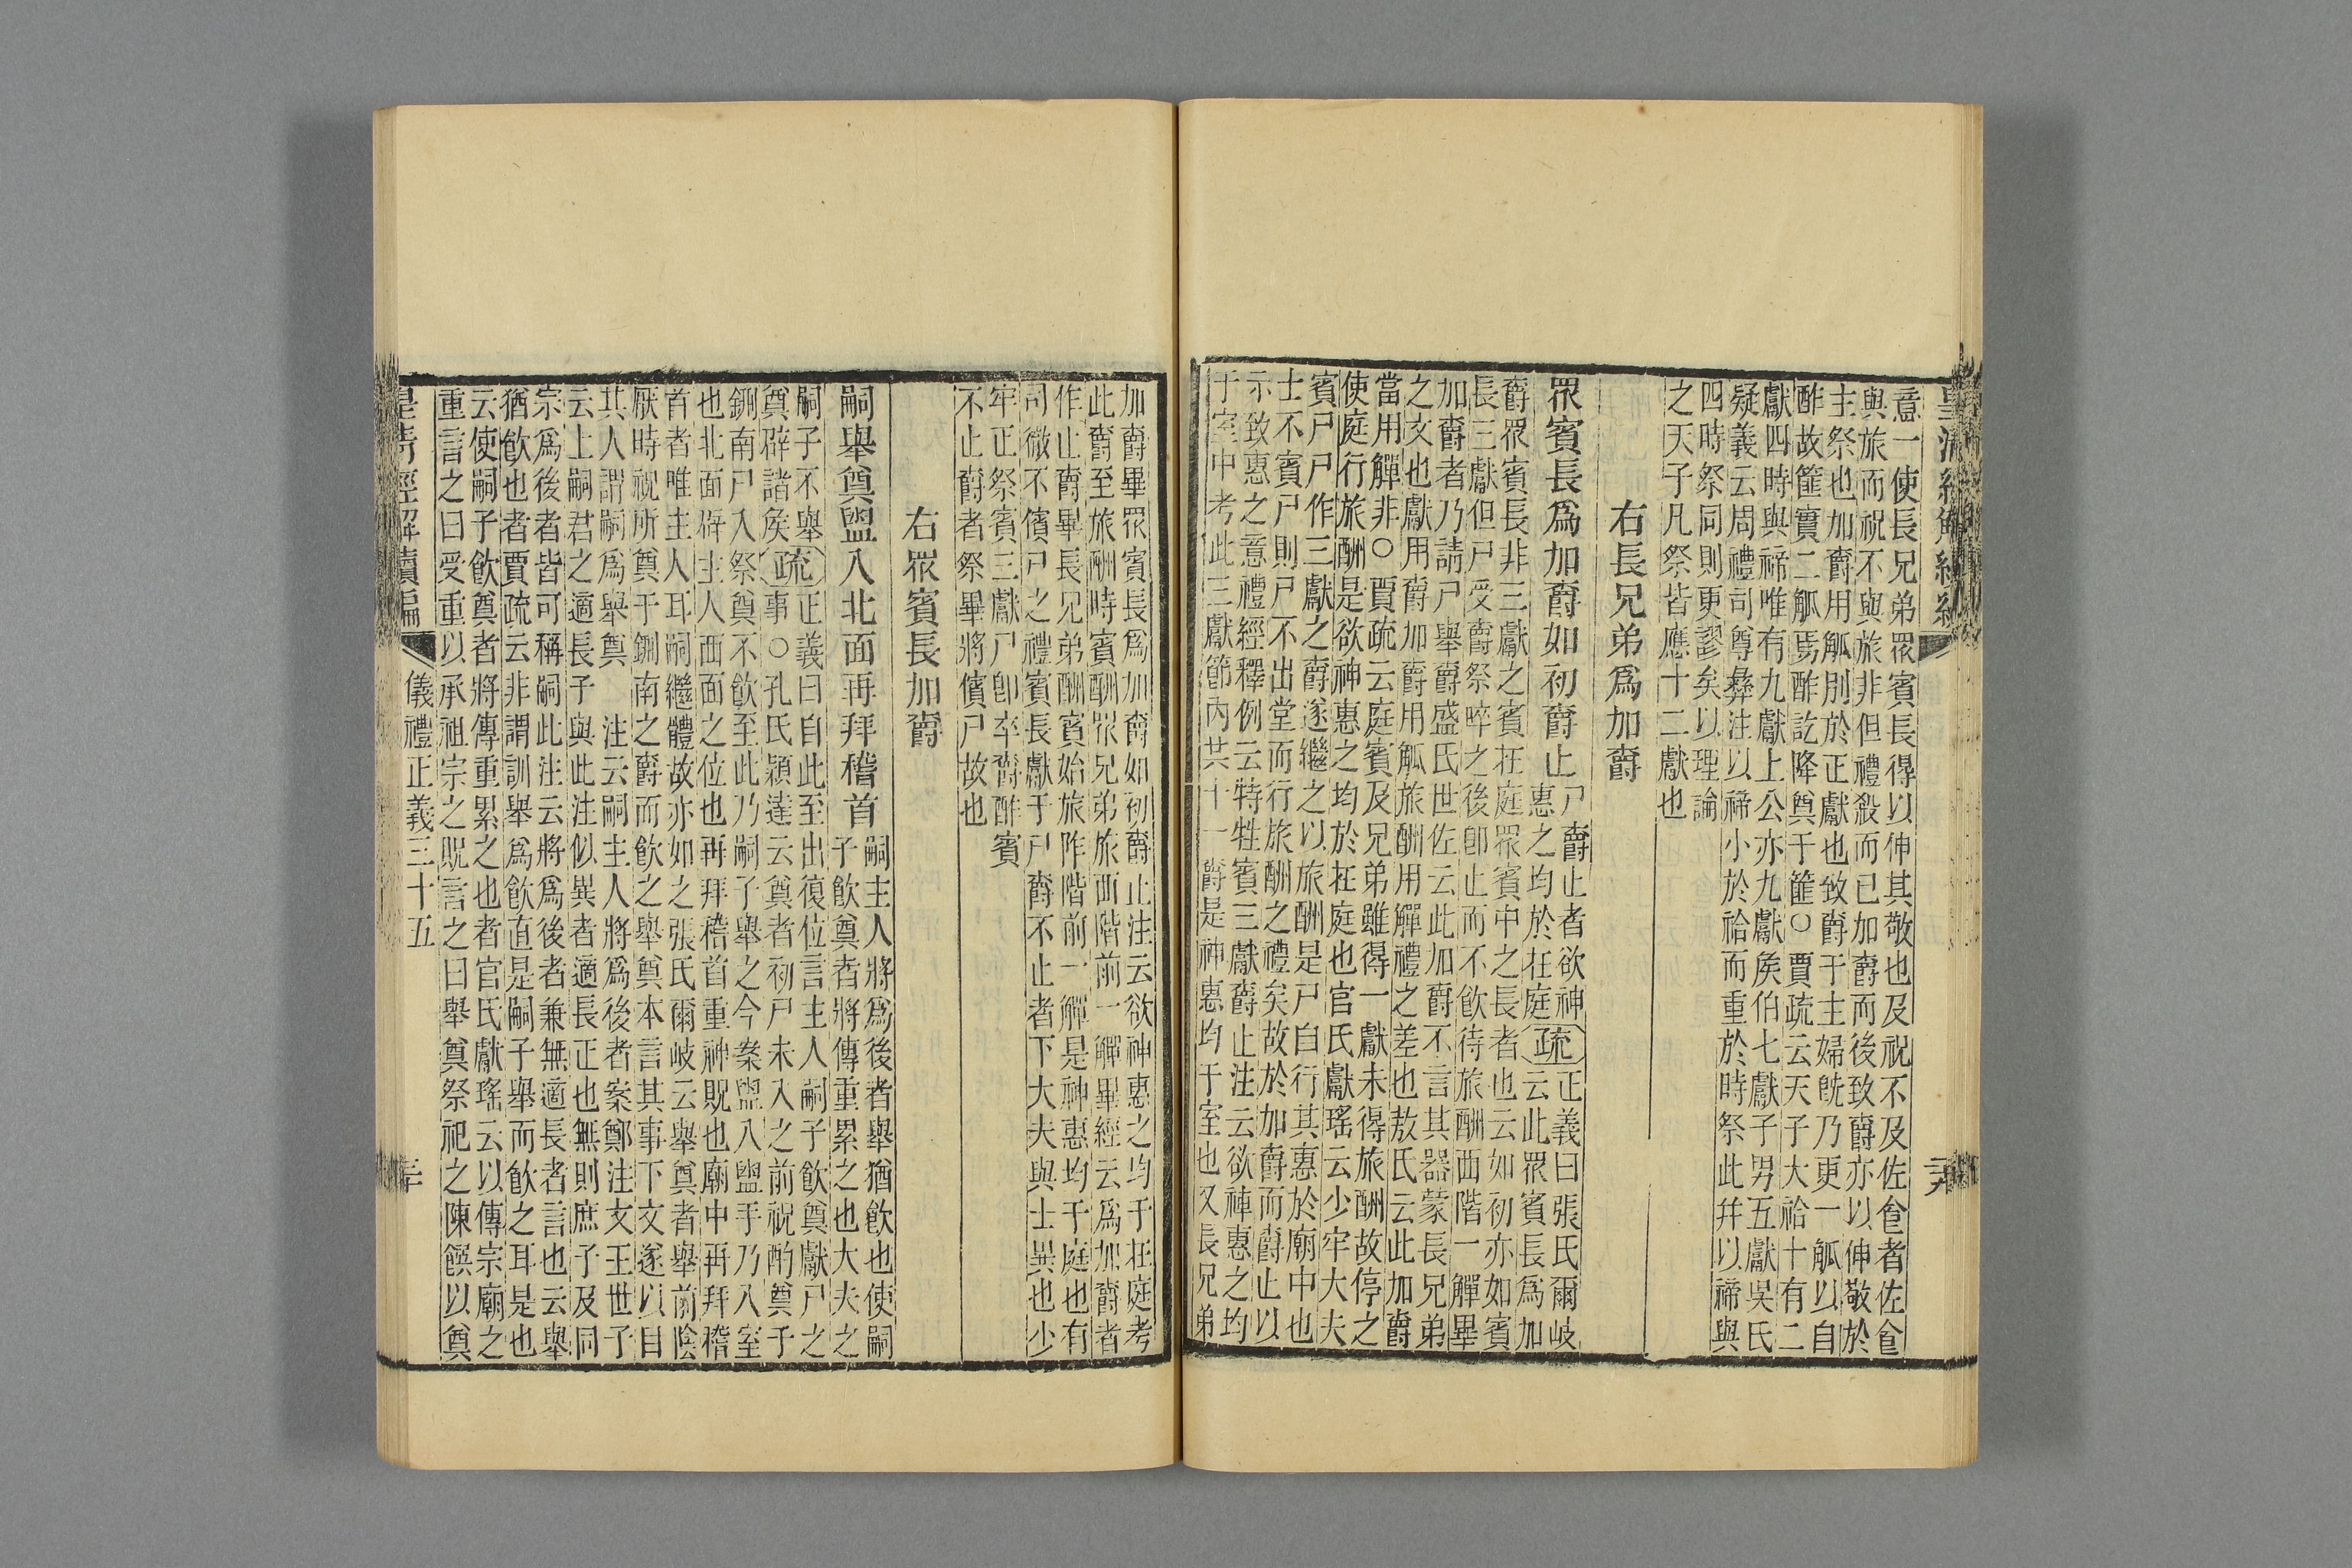 意一使長兄弟眾賓長得以伸其敬也及祝不及佐食者佐食
與旅而祝不與旅非但禮殺而已加爵而後致爵亦以伸敬於
主祭也加爵用觚別於正獻也致爵于主婦旣乃更一觚以自
酢故篚實二觚焉酢訖降奠于篚○賈疏云天子大祫十有二
獻四時與禘唯有九獻上公亦九獻矦伯七獻子男五獻吳氏
疑義云周禮司尊彝注以禘小於祫而重於時祭此幷以禘與
四時祭同則更謬矣以理論
之天子凡祭皆應十二獻也
右長兄弟爲加爵
眾賓長爲加爵如初爵止
尸爵止者欲神
惠之均於在庭
疏
正義曰張氏爾岐
云此眾賓長爲加
爵眾賓長非三獻之賓在庭眾賓中之長者也云如初亦如賓
長三獻但尸受爵祭啐之後卽止而不飮待旅酬西階一觶畢
加爵者乃請尸舉爵盛氏世佐云此加爵不言其器蒙長兄弟
之文也獻用爵加爵用觚旅酬用觶禮之差也敖氏云此加爵
當用觶非○賈疏云庭賓及兄弟雖得一獻未得旅酬故停之
使庭行旅酬是欲神惠之均於在庭也官氏獻瑤云少牢大夫
賓尸尸作三獻之爵遂繼之以旅酬是尸自行其惠於廟中也
士不賓尸則尸不出堂而行旅酬之禮矣故於加爵而爵止以
示致惠之意禮經釋例云特牲賓三獻爵止注云欲神惠之均
于室中考此三獻節內共十一爵是神惠均于室也又長兄弟
加爵畢眾賓長爲加爵如初爵止注云欲神惠之均于在庭考
此爵至旅酬時賓酬眾兄弟旅西階前一觶畢經云爲加爵者
作止爵畢長兄弟酬賓始旅阼階前一觶是神惠均于庭也有
司徹不儐尸之禮賓長獻于尸爵不止者下大夫與士異也少
牢正祭賓三獻尸卽卒爵酢賓
不止爵者祭畢將儐尸故也
右眾賓長加爵
嗣舉奠盥入北面再拜稽首
嗣主人將爲後者舉猶飮也使嗣
子飮奠者將傳重累之也大夫之
嗣子不舉
奠辟諸矦
疏
正義曰自此至出復位言主人嗣子飮奠獻尸之
事○孔氏穎達云奠者初尸未入之前祝酌奠于
鉶南尸入祭奠不飮至此乃嗣子舉之今案盥入盥手乃入室
也北面辟主人西面之位也再拜稽首重神貺也廟中再拜稽
首者唯主人耳嗣繼體故亦如之張氏爾岐云舉奠者舉前陰
厭時祝所奠于鉶南之爵而飮之舉奠本言其事下文遂以目
其人謂嗣爲舉奠　注云嗣主人將爲後者案鄭注文王世子
云上嗣君之適長子與此注似異者適長正也無則庶子及同
宗爲後者皆可稱嗣此注云將爲後者兼無適長者言也云舉
猶飮也者賈疏云非謂訓舉爲飮直是嗣子舉而飮之耳是也
云使嗣子飮奠者將傳重累之也者官氏獻瑤云以傳宗廟之
重言之曰受重以承祖宗之貺言之曰舉奠祭祀之陳饌以奠
儀禮正義三十五